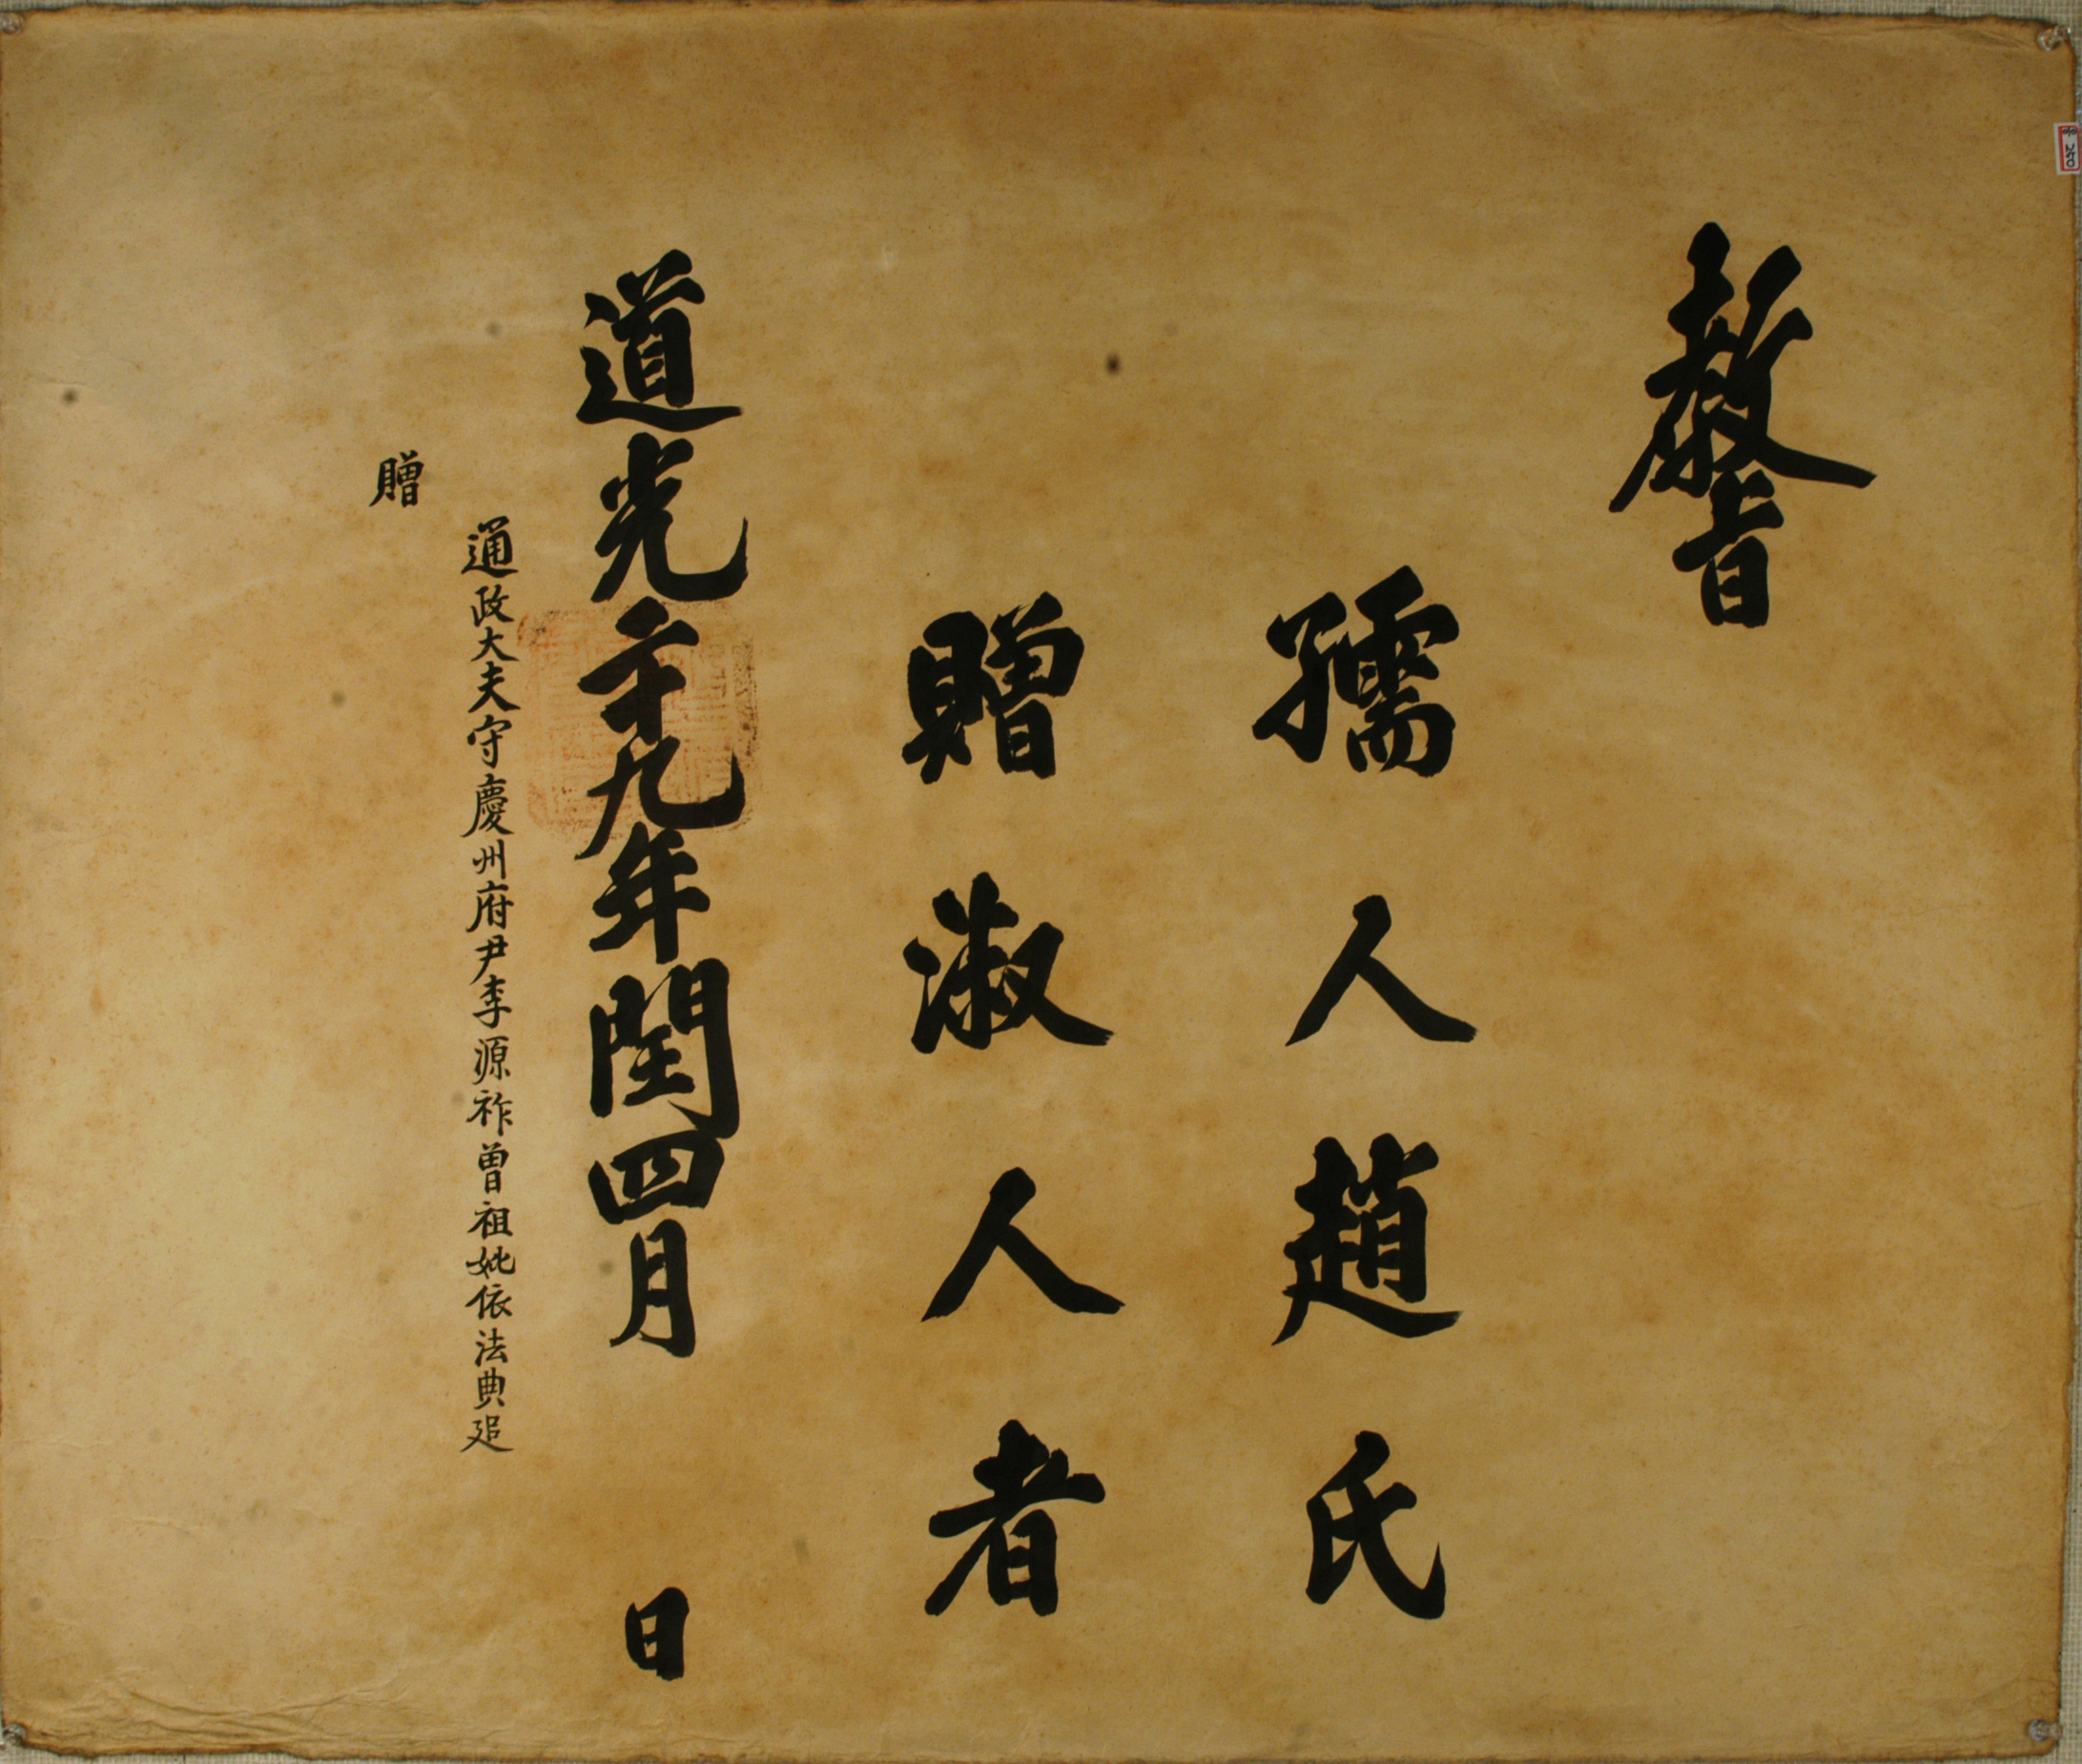 敎旨
孺人趙氏
贈淑人者
道光二十九年閏四月 日
通政大夫守慶州府尹李源祚曾祖妣依法典追
贈